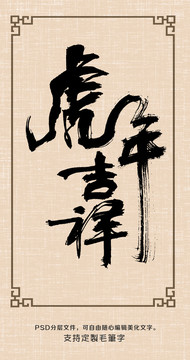 虎年吉祥
PSD分层文件，可自由随心编辑美化文字。
支持定製毛筆字